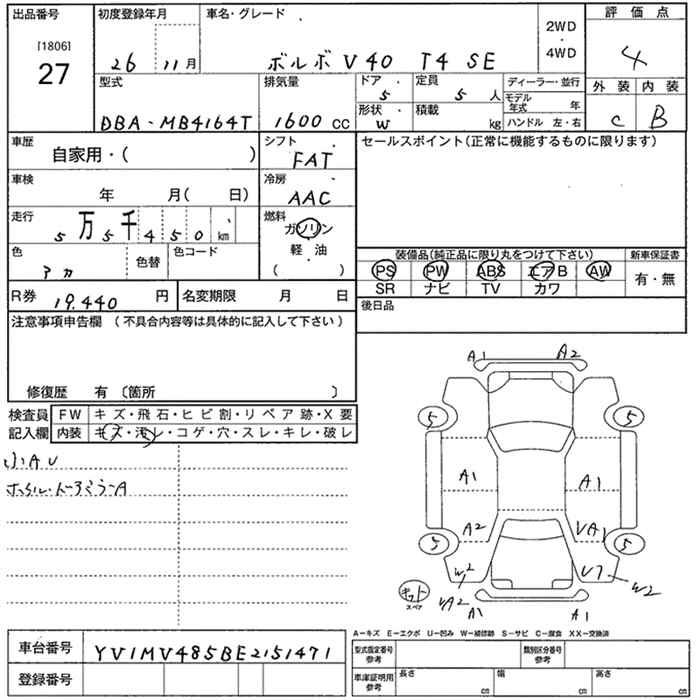 出品番号 初度登録年月 車名・グレード 2WD・4WD 評価点
[1806] 27
26 11月 ボルボ V40 T4 SE 4
型式 排気量 ドア 定員 ディーラー・並行 外装 内装
5 5人 モデル年式 年
形状 積載
DBA-MB4164T 1600cc W kg ハンドル 左・右 C B
車歴 シフト セールスポイント(正常に機能するものに限ります)
自家用・( ) FAT
車検 冷房
年 月( 日) AAC
走行 燃料
5万5千450km ガソリン
軽・油
( ・ )
色 色替 色コード 装備品(純正品に限り丸をつけて下さい) 新車保証書
アカ PS PW ABS エアB AW 有・無
SR ナビ TV カワ
R券 19.440円 名変期限 月 日 後日品
注意事項申告欄 (不具合内容等は具体的に記入して下さい)
修復歴 有 〔箇所 〕
検査員 FW キズ・飛石・ヒビ割・リペア跡・X要
記入欄 内装 キズ・汚レ・コゲ・穴・スレ・キレ・破レ
小AU
A1 A2
5 5
A1 A1
A2 VA1
5 5
W2 V7 W2
キット スペア
VA2 A1 A1
A-キズ E-エクボ U-凹み W-補修跡 S-サビ C-腐食 XX-交換済
車台番号 YV1MV485BE2151471 型式指定番号 参考 類別区分番号 参考
登録番号 車庫証明用 参考 長さ cm 幅 cm 高さ cm